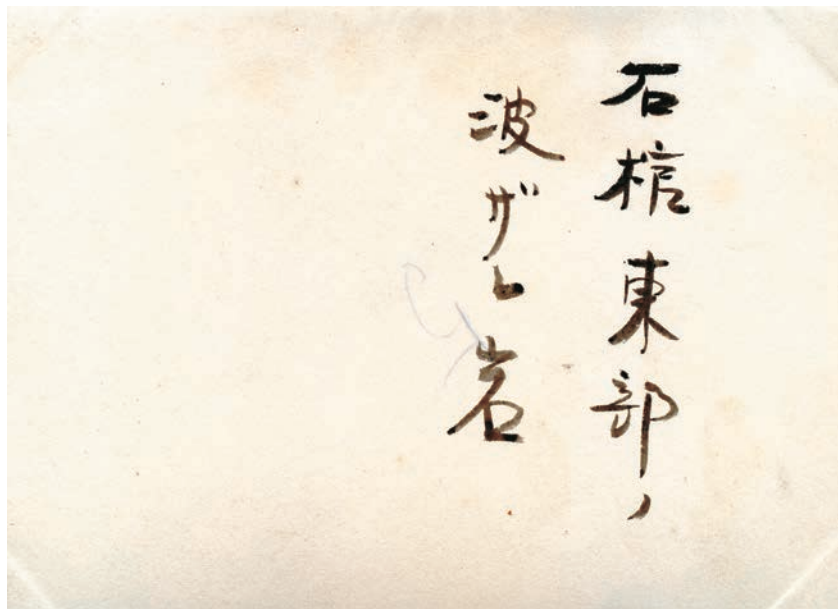 石棺東部ノ
波ザレ岩